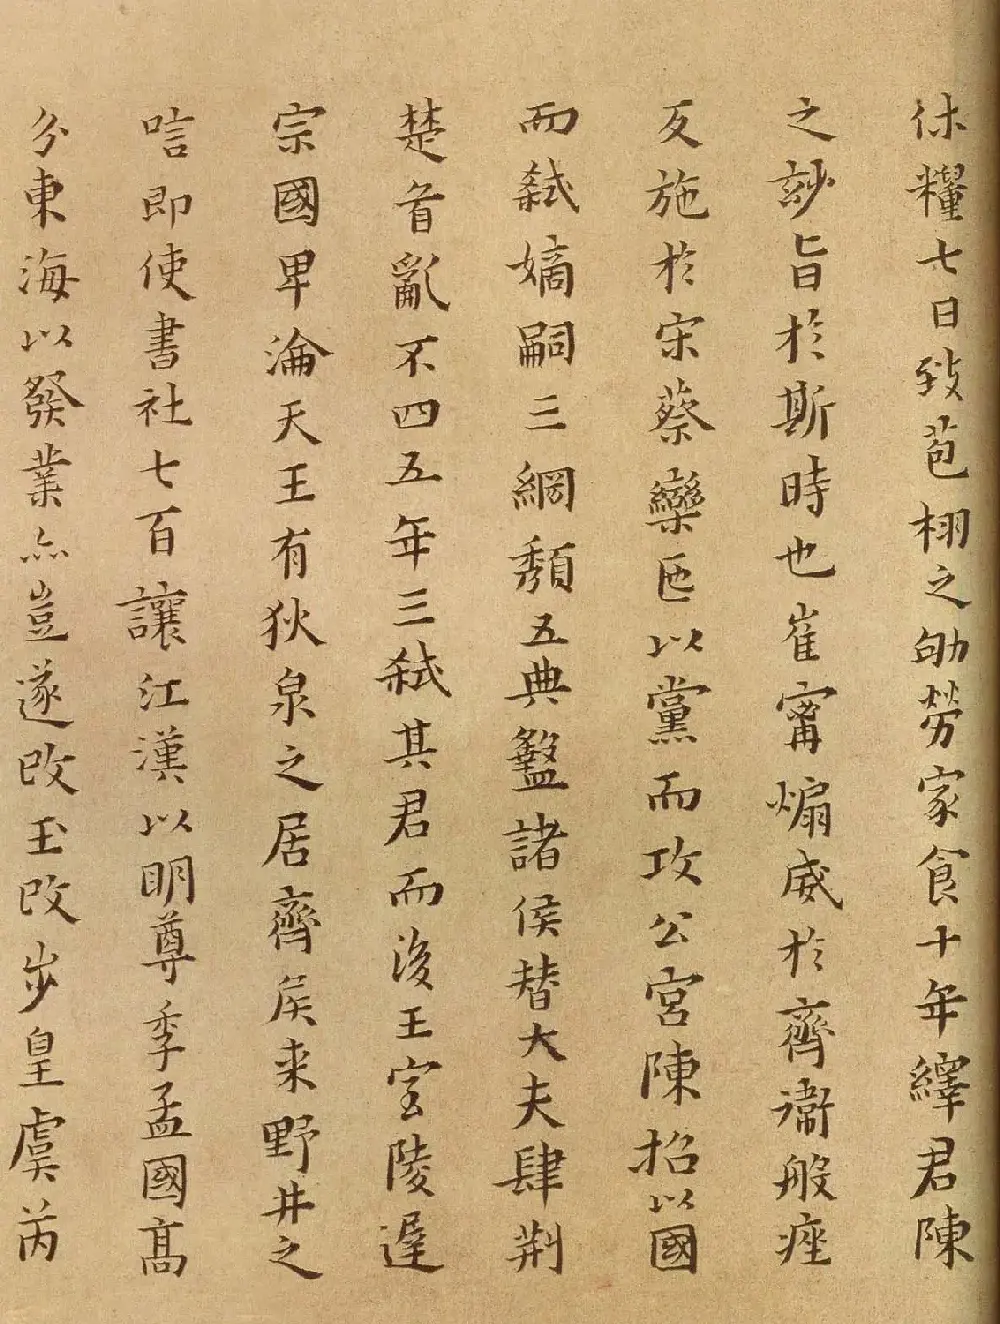 休糧七日致苞栩之劬勞家食十年繹君陳
之訬旨於斯時也崔甯煽威於齊衛般痤
反施於宋蔡欒以黨而攻公宮陳招以國
而弒嫡嗣三綱頹五典盭諸侯替大夫肆荊
楚首亂不四五年三弒其君而後王室陵遲
宗國卑淪天王有狄泉之居齊侯来野井之
唁即使書社七百讓江漢以明尊季孟國髙
分東海以發業亦豈遂改玉改步皇虞芮